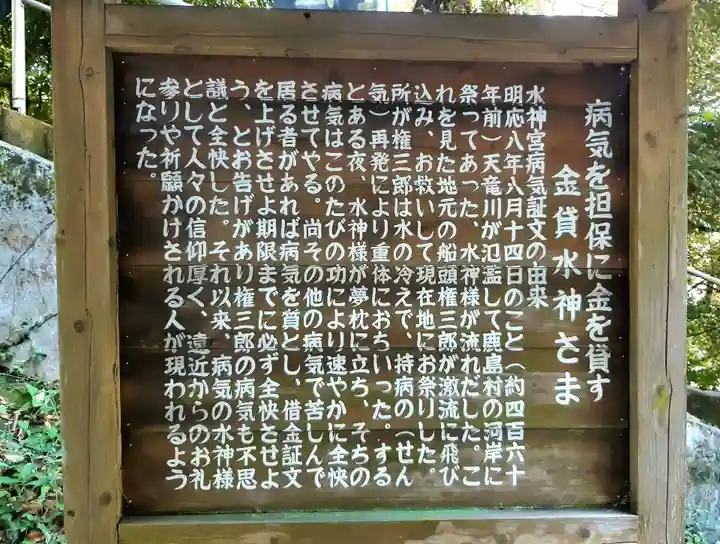 病気を担保に金を貸す
金貸水神さま
水神宮病気証文の由来
明応八年八月十四日のこと（約四百六十
年前）天竜川が氾濫して鹿島村の河岸に
祭ってあった、水神様が流れだした。こ
れを見た地元の船頭権三郎が激流に飛び
込み、お救いして現在地にお祭りした。
所が権三郎は水の冷えで、持病の（せん
気）再発により重体におちいった。する
とある夜、水神様が夢枕に立ち、そちの
病気はこのたびの功により速やかに全快
させてやる。尚その他の病気で苦しんで
居る者があれば病気を質とし、借金証文
を上げさせよ期限までに必ず全快させよ
う、とお告げがあり権三郎の病気も不思
議と全快した。それ以来、病気の水神様
として人々の信仰厚く、遠近からのお礼
参りや祈願かけされる人が現われるよう
になった。